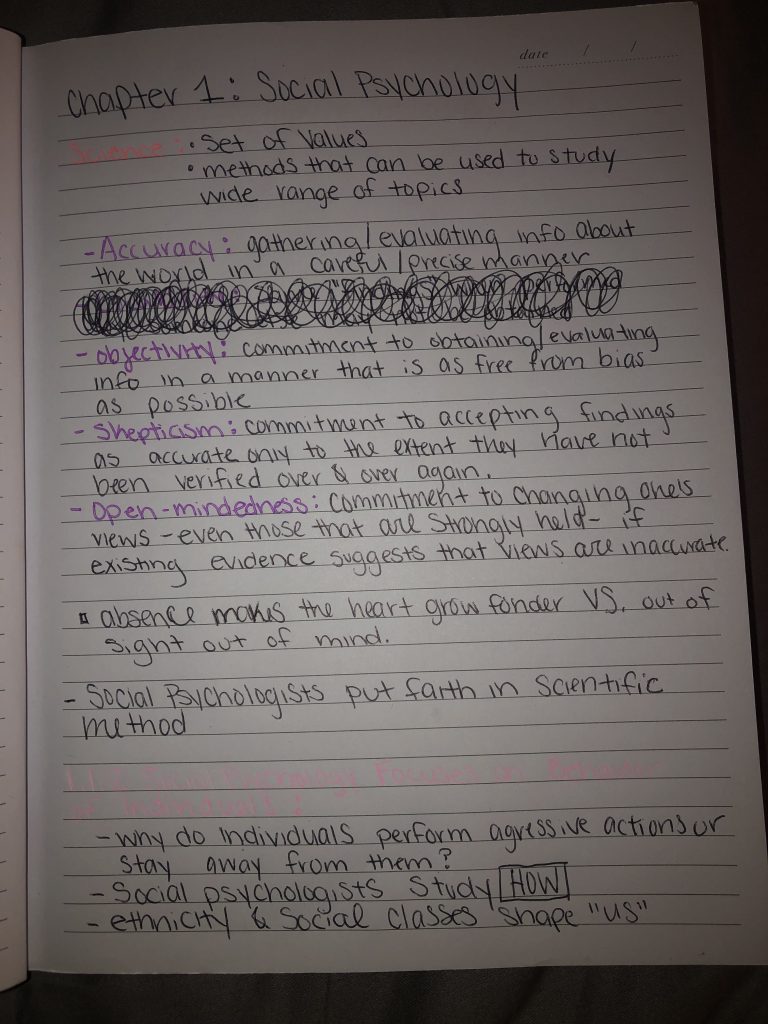 date / /
Chapter 1: Social Psychology
Science: • Set of Values
• methods that can be used to study
wide range of topics
- Accuracy: gathering/evaluating info about
the world in a careful/precise manner
- objectivity: commitment to obtaining/evaluating
info in a manner that is as free from bias
as possible
- Skepticism: commitment to accepting findings
as accurate only to the extent they have not
been verified over & over again.
- Open-mindedness: Commitment to changing one's
views - even those that are strongly held - if
existing evidence suggests that views are inaccurate.
absence makes the heart grow fonder VS. out of
sight out of mind.
- Social Psychologists put faith in Scientific
method
1.1.2 Social Psychology Focuses on Behavior
of Individuals:
- why do individuals perform agressive actions or
stay away from them?
- Social psychologists Study HOW
- ethnicity & Social classes shape "us"